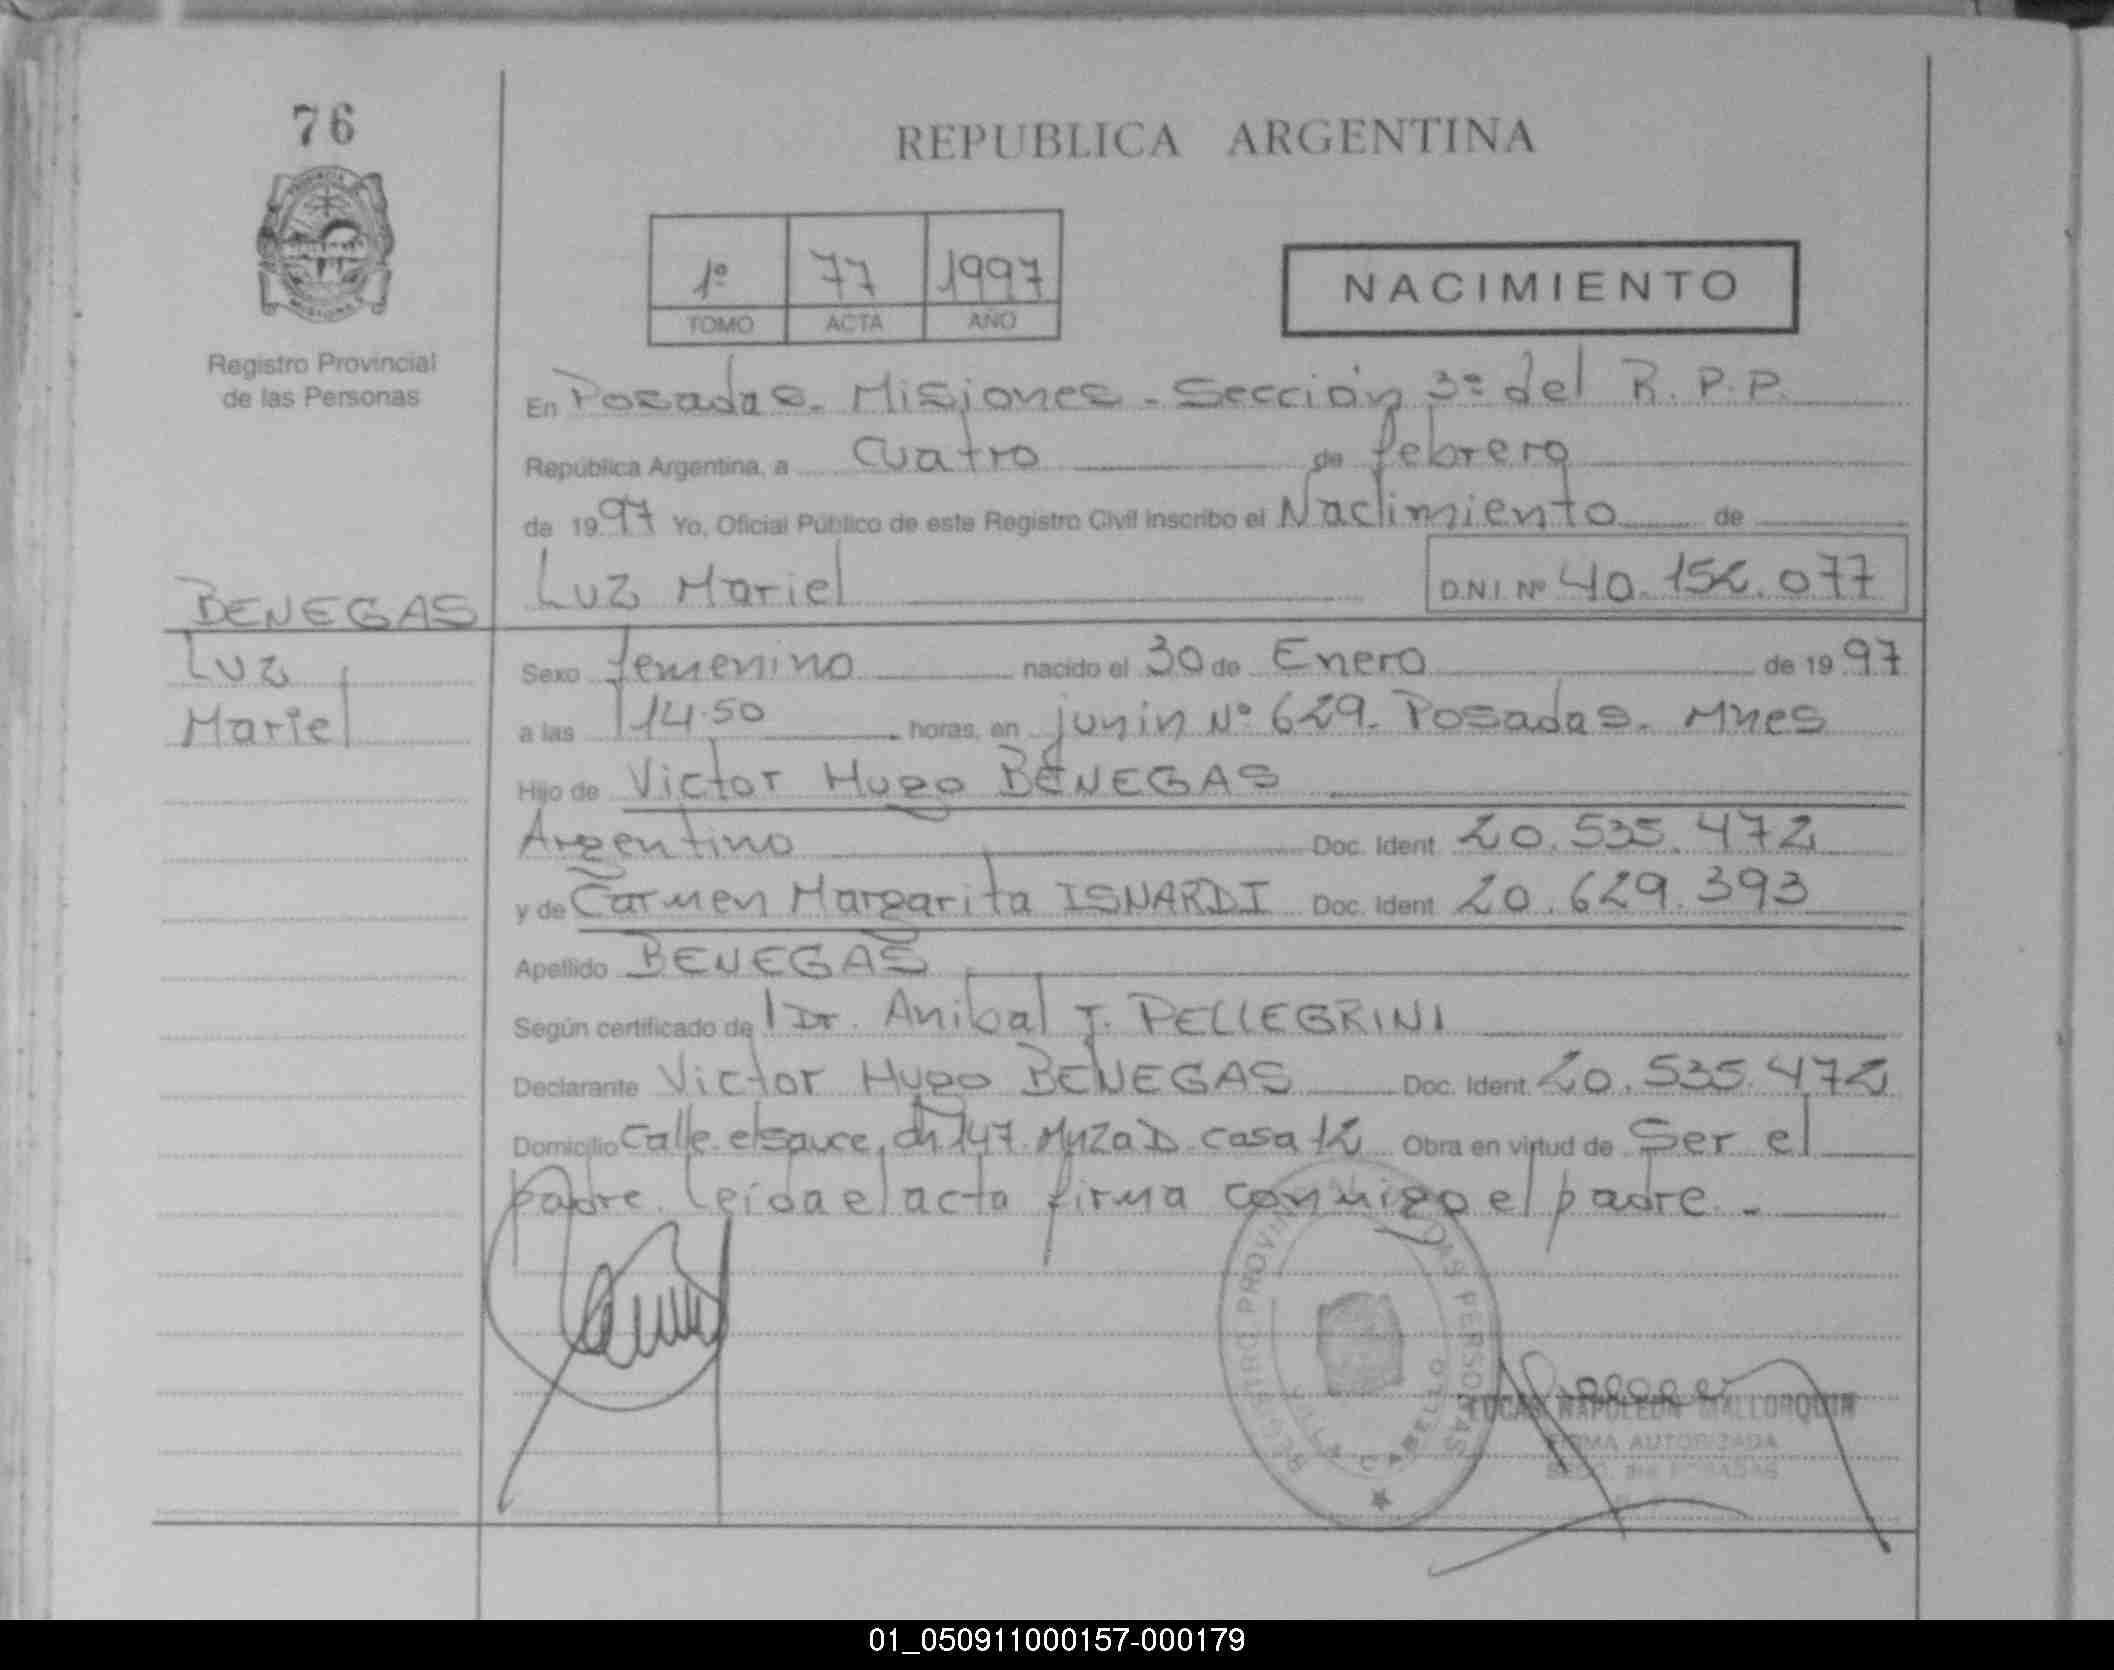 76
REPUBLICA ARGENTINA
1º 77 1997
TOMO ACTA AÑO
NACIMIENTO
Registro Provincial
de las Personas
En Posadas. Misiones - Sección 3ª del R. P. P.
República Argentina, a cuatro de febrero
de 1997 Yo, Oficial Público de este Registro Civil Inscribo el Nacimiento de
Luz Mariel D.N.I. Nº 40.152.077
BENEGAS
Luz
Mariel
Sexo femenino nacido el 30 de Enero de 1997
a las 14.50 horas, en junin Nº 629. Posadas. Mnes
Hijo de Victor Hugo BENEGAS
Argentino Doc. Ident. 20.535.472
y de Carmen Margarita ISNARDI Doc. Ident. 20.629.393
Apellido BENEGAS
Según certificado de l Dr. Anibal J. PELLEGRINI
Declarante Victor Hugo BENEGAS Doc. Ident. 20.535.472
Domicilio Calle. el sauce, ch 147. Mnza D. casa 12 Obra en virtud de Ser el
padre. Leída el acta firma conmigo el padre. -
REGISTRO PROVINCIAL DE LAS PERSONAS
VILLA CABELLO
LUCAS NAPOLEON MALLORQUIN
FIRMA AUTORIZADA
SECC. 3ra POSADAS
01_050911000157-000179